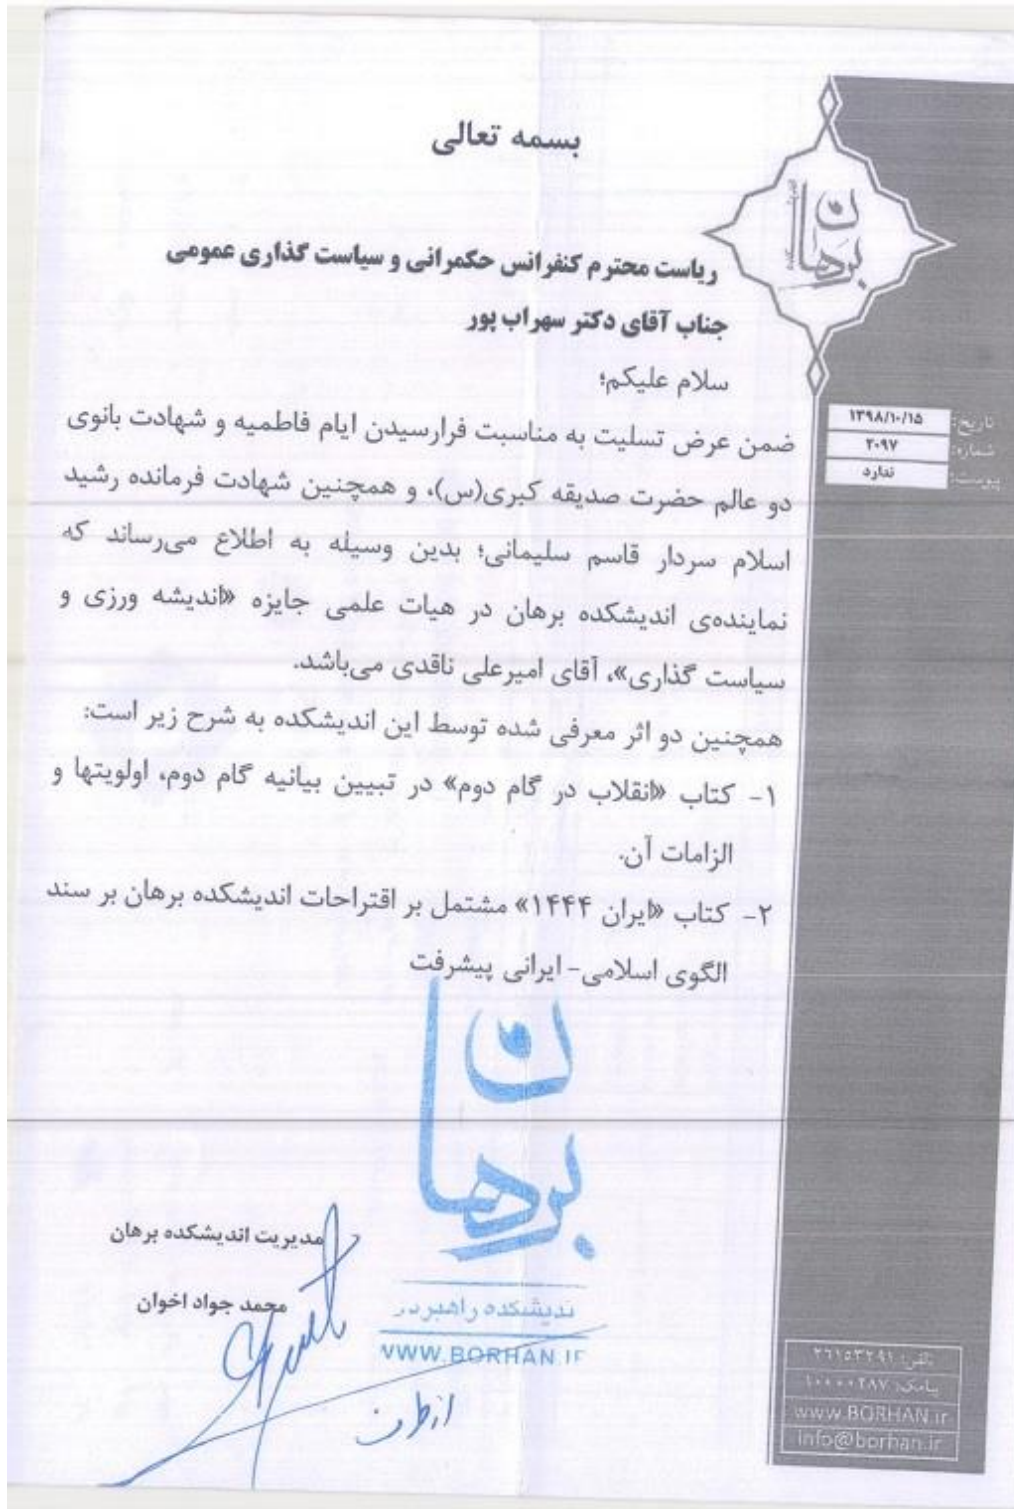 بسمه تعالی
برهان
ریاست محترم کنفرانس حکمرانی و سیاست گذاری عمومی
جناب آقای دکتر سهراب پور
سلام علیکم؛
تاریخ: ۱۳۹۸/۱۰/۱۵
شماره: ۲۰۹۷
پیوست: ندارد
ضمن عرض تسلیت به مناسبت فرارسیدن ایام فاطمیه و شهادت بانوی
دو عالم حضرت صدیقه کبری(س)، و همچنین شهادت فرمانده رشید
اسلام سردار قاسم سلیمانی؛ بدین وسیله به اطلاع می‌رساند که
نماینده‌ی اندیشکده برهان در هیات علمی جایزه «اندیشه ورزی و
سیاست گذاری»، آقای امیرعلی ناقدی می‌باشد.
همچنین دو اثر معرفی شده توسط این اندیشکده به شرح زیر است:
۱- کتاب «انقلاب در گام دوم» در تبیین بیانیه گام دوم، اولویتها و
الزامات آن.
۲- کتاب «ایران ۱۴۴۴» مشتمل بر اقتراحات اندیشکده برهان بر سند
الگوی اسلامی- ایرانی پیشرفت
برهان
ندیشکده راهبرد
WWW.BORHAN.IR
مدیریت اندیشکده برهان
محمد جواد اخوان
از طرف
تلفن: ۲۶۱۵۳۲۹۱
پیامک: ۱۰۰۰۰۲۸۷
www.BORHAN.ir
info@borhan.ir